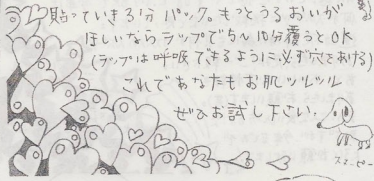 貼っていきろ3分パック。もっとうるおいが
ほしいならラップで5〜10分覆うとOK
(ラップは呼吸できるように必ず穴をあける)
これであなたもお肌ツルツル
ぜひお試し下さい。
スヌーピー